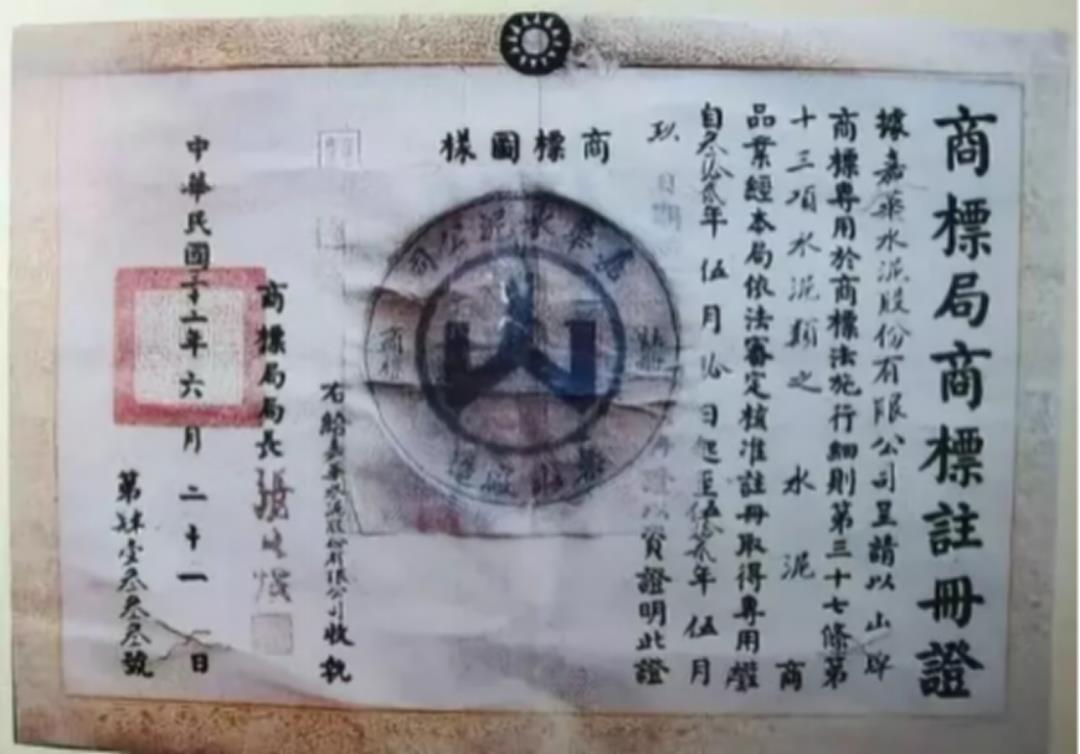 商標局商標註冊證
據嘉華水泥股份有限公司呈請以山牌
商標專用於商標法施行細則第三十七條第
十三項水泥類之水泥商
品業經本局依法審定核准註冊取得專用權
自叁拾貳年伍月拾日起至伍拾貳年伍月
玖日
資證明此證
商標圖樣
嘉華水泥公司
商標
右給嘉華水泥股份有限公司收執
商標局局長
中華民國三十二年六月二十一日
第肆壹叁叁叁號